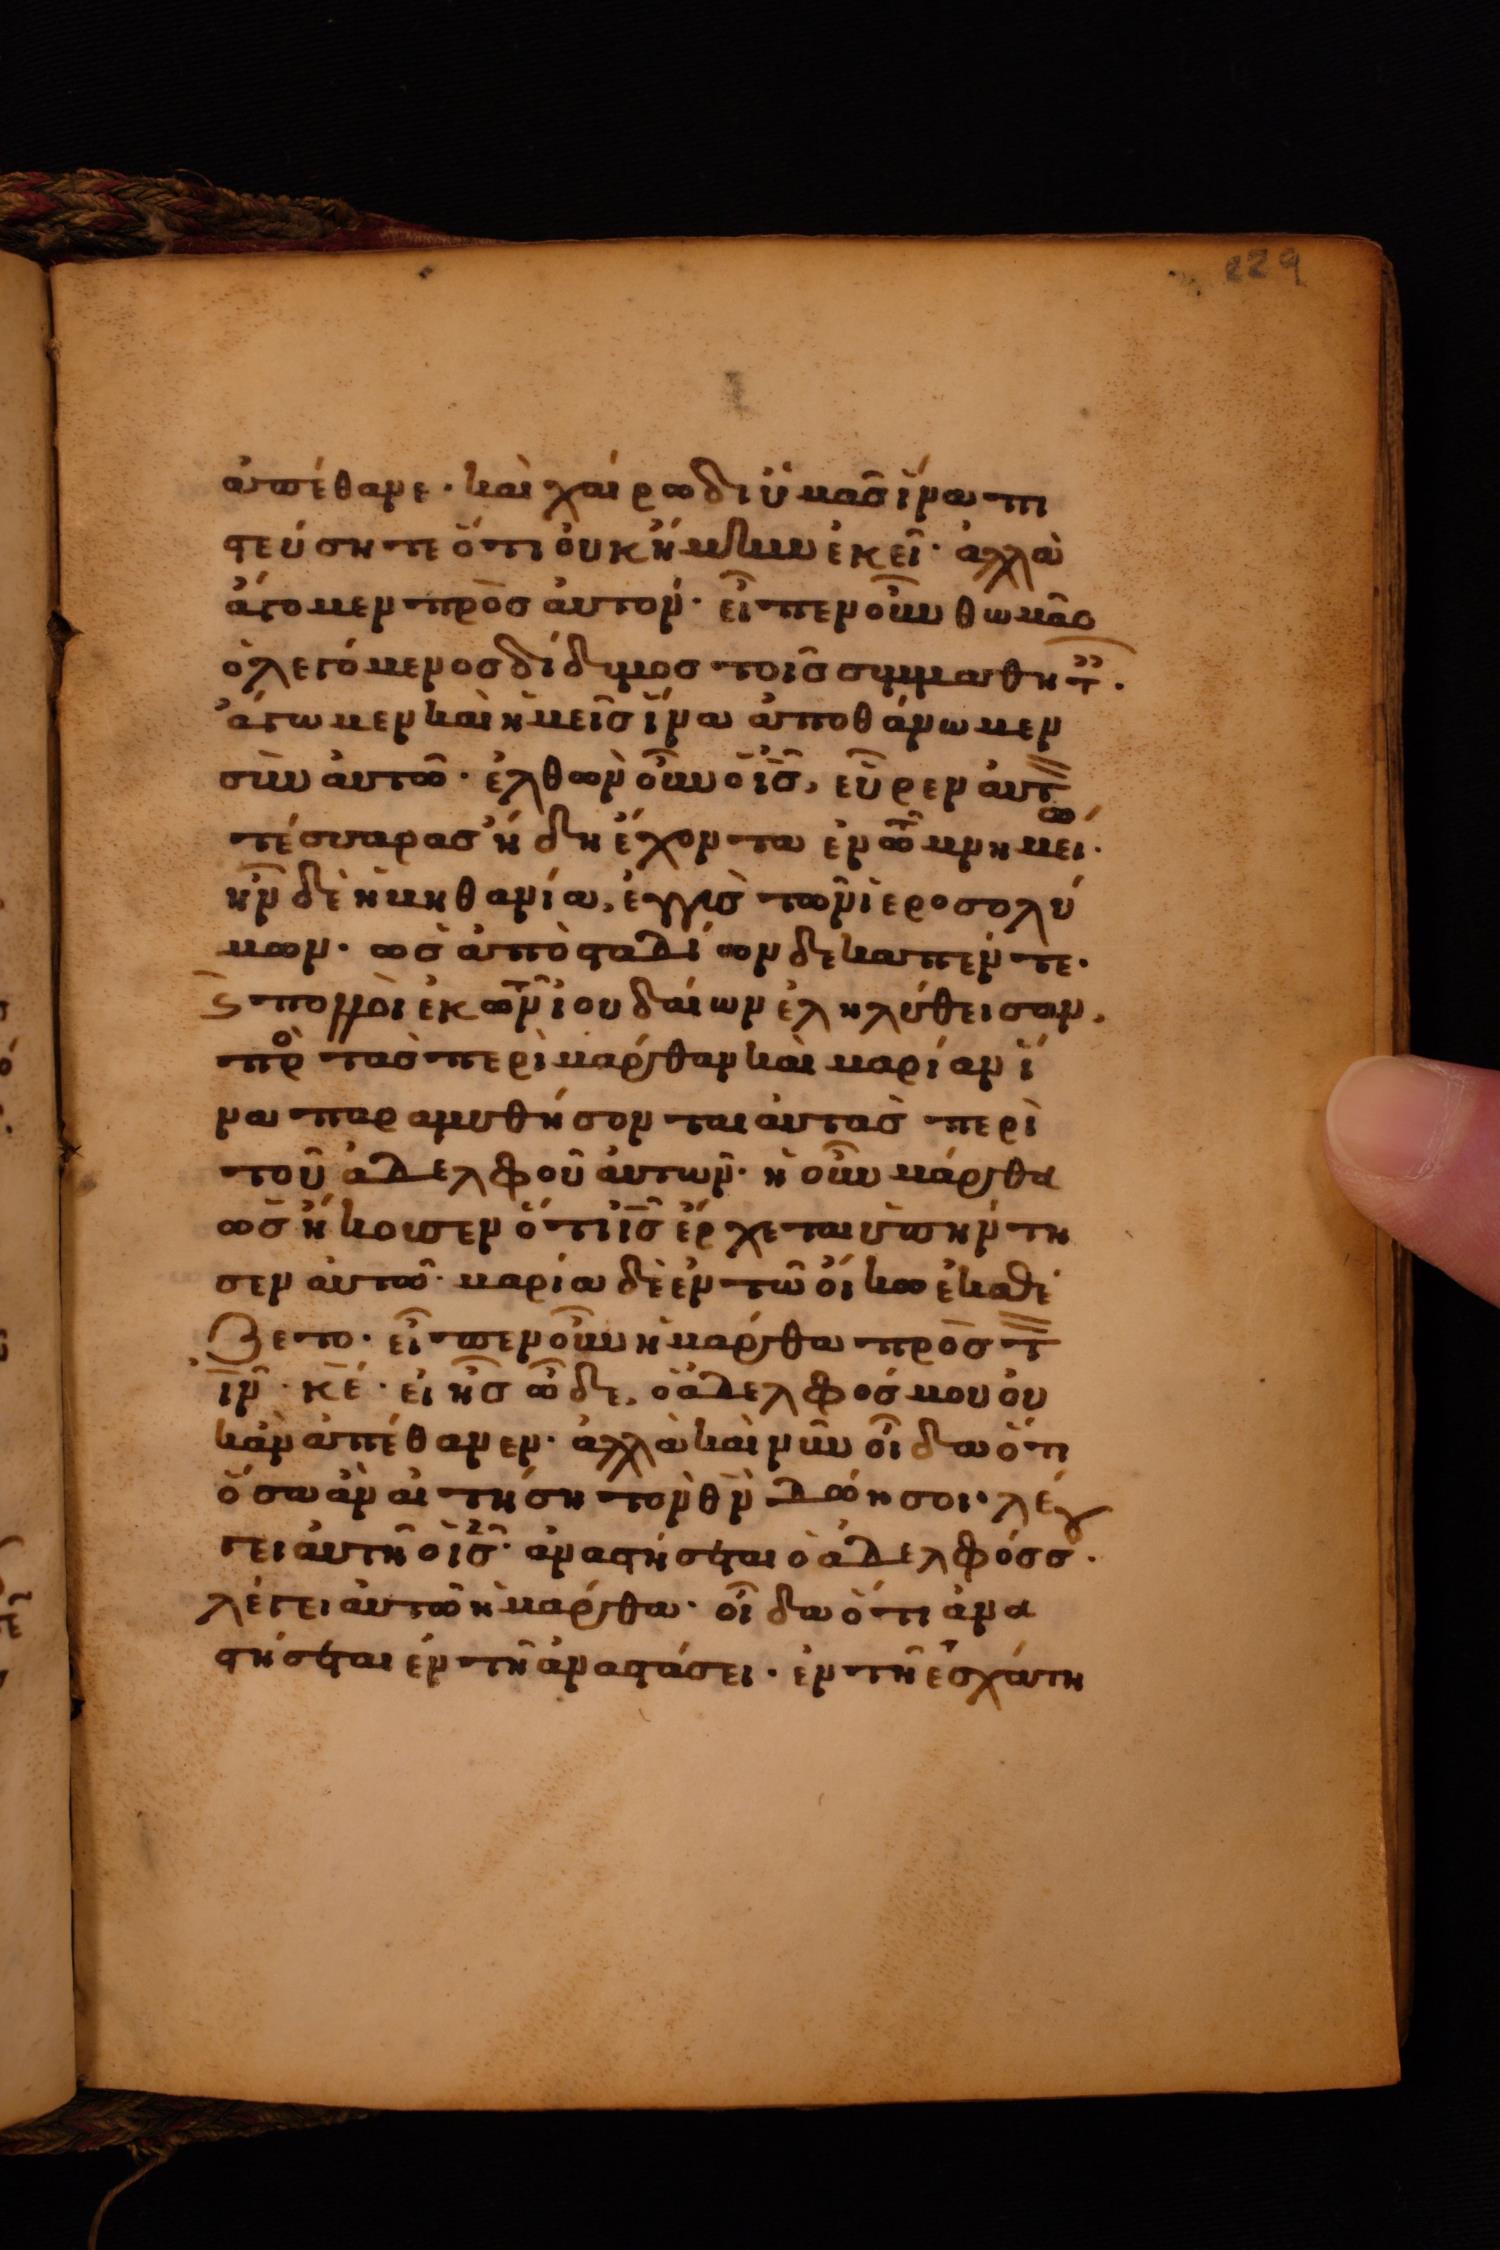 229
ἀπέθανε· καὶ χαίρω δι ὑμᾶς ἵνα πι
στεύσητε ὅτι οὐκ ἤμην ἐκεῖ· ἀλλὰ
ἄγομεν πρὸς αὐτόν· εἶπεν οὖν θωμᾶς
ὁ λεγόμενος δίδυμος τοῖς συμμαθητ·
ἄγωμεν καὶ ἡμεῖς ἵνα ἀποθάνωμεν
σὺν αὐτῶ· ἐλθὼν οὖν ὁ ις, εὗρεν αὐτ
τέσσαρας ἤδη ἔχοντα ἐν τῶ μνημεί·
ω
ἦν δὲ ἡ βηθανία, ἐγγὺς τῶν ἱεροσολύ
μων· ὡς ἀπὸ σταδίων δεκαπέντε·
ϛ πολλοὶ ἐκ τῶν ἰουδαίων ἐληλύθεισαν,
πρὸ τὰς περὶ μάρθαν καὶ μαρίαν ἵ
να παραμυθήσονται αὐτὰς περὶ
τοῦ ἀδελφοῦ αὐτῶν· ἡ οὖν μάρθα
ὡς ἤκουσεν ὅτι ις ἔρχεται ὑπήντη
σεν αὐτῶ· μαρία δὲ ἐν τῶ οἴκω ἐκαθέ
ζετο· εἶπεν οὖν ἡ μάρθα πρὸς τ
ιν· κε· εἰ ἦς ὧδε, ὁ ἀδελφός μου οὐ
κὰν ἀπέθανεν· ἀλλὰ καὶ νῦν οἶδα ὅτι
ὅσα ἂν αἰτήση τὸν θν δώη σοι· λέγ
γει αὐτῆ ὁ ις· ἀναστήσεται ὁ ἀδελφόσσ·
λέγει αὐτῶ ἡ μάρθα· οἶδα ὅτι ἀνα
στήσεται ἐν τῆ ἀναστάσει· ἐν τῆ ἐσχάτη